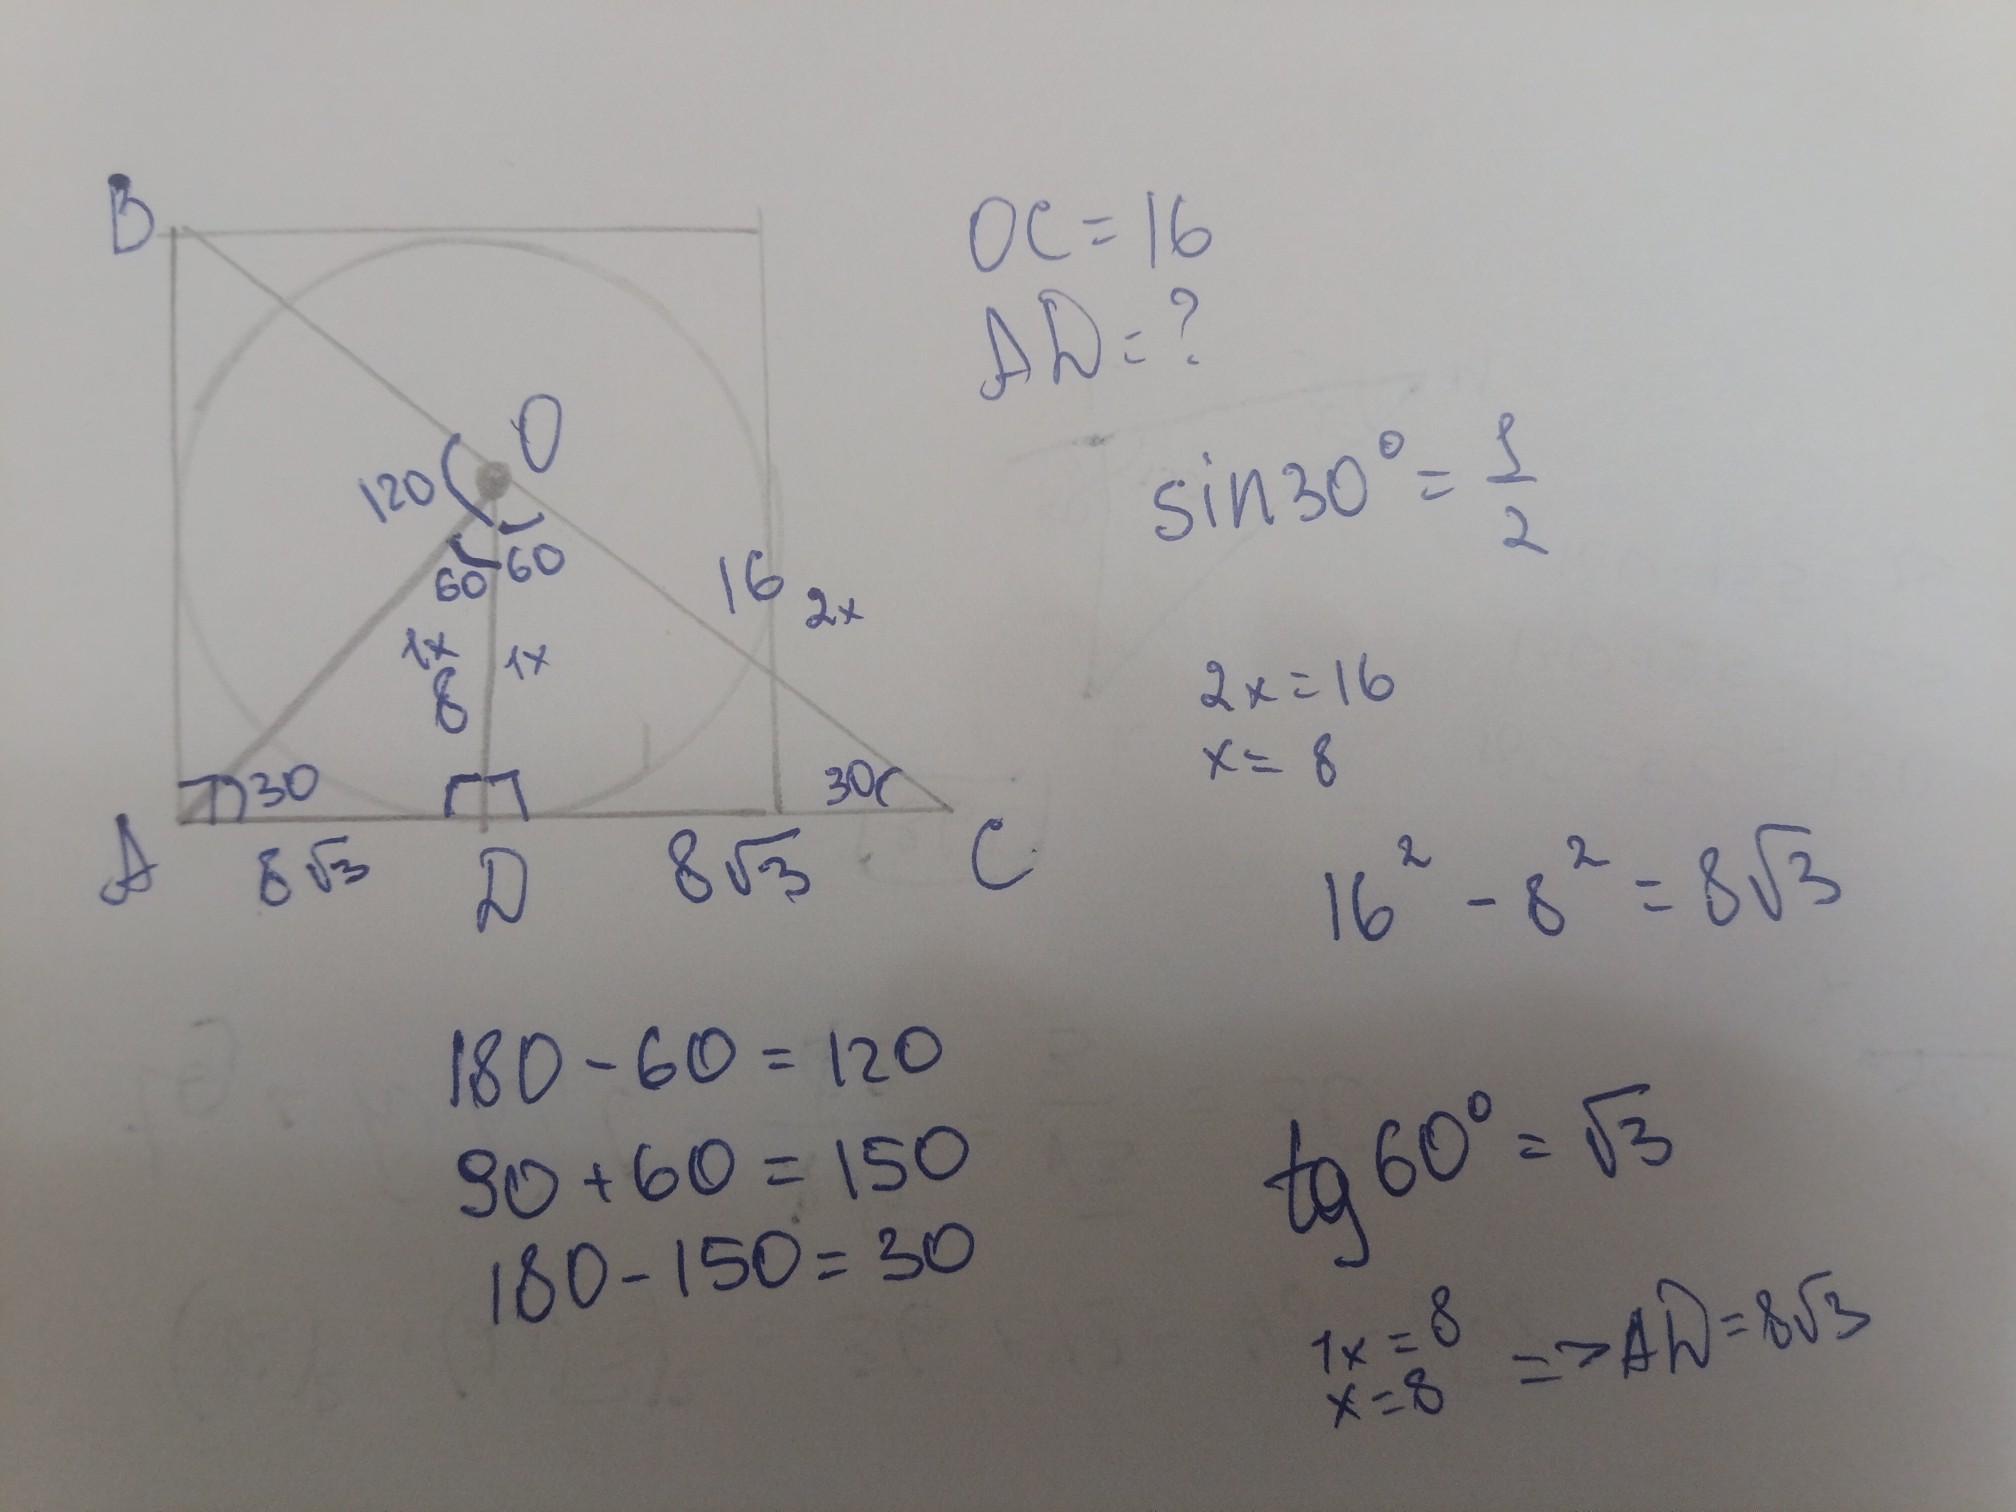 B
O
120
60 60
1x 1x
8
16 2x
30
30
A
8√3
D
8√3
C
OC=16
AD=?
sin30°=1/2
2x=16
x=8
16²-8²=8√3
180-60=120
90+60=150
180-150=30
tg60°=√3
1x=8
x=8 =>AD=8√3